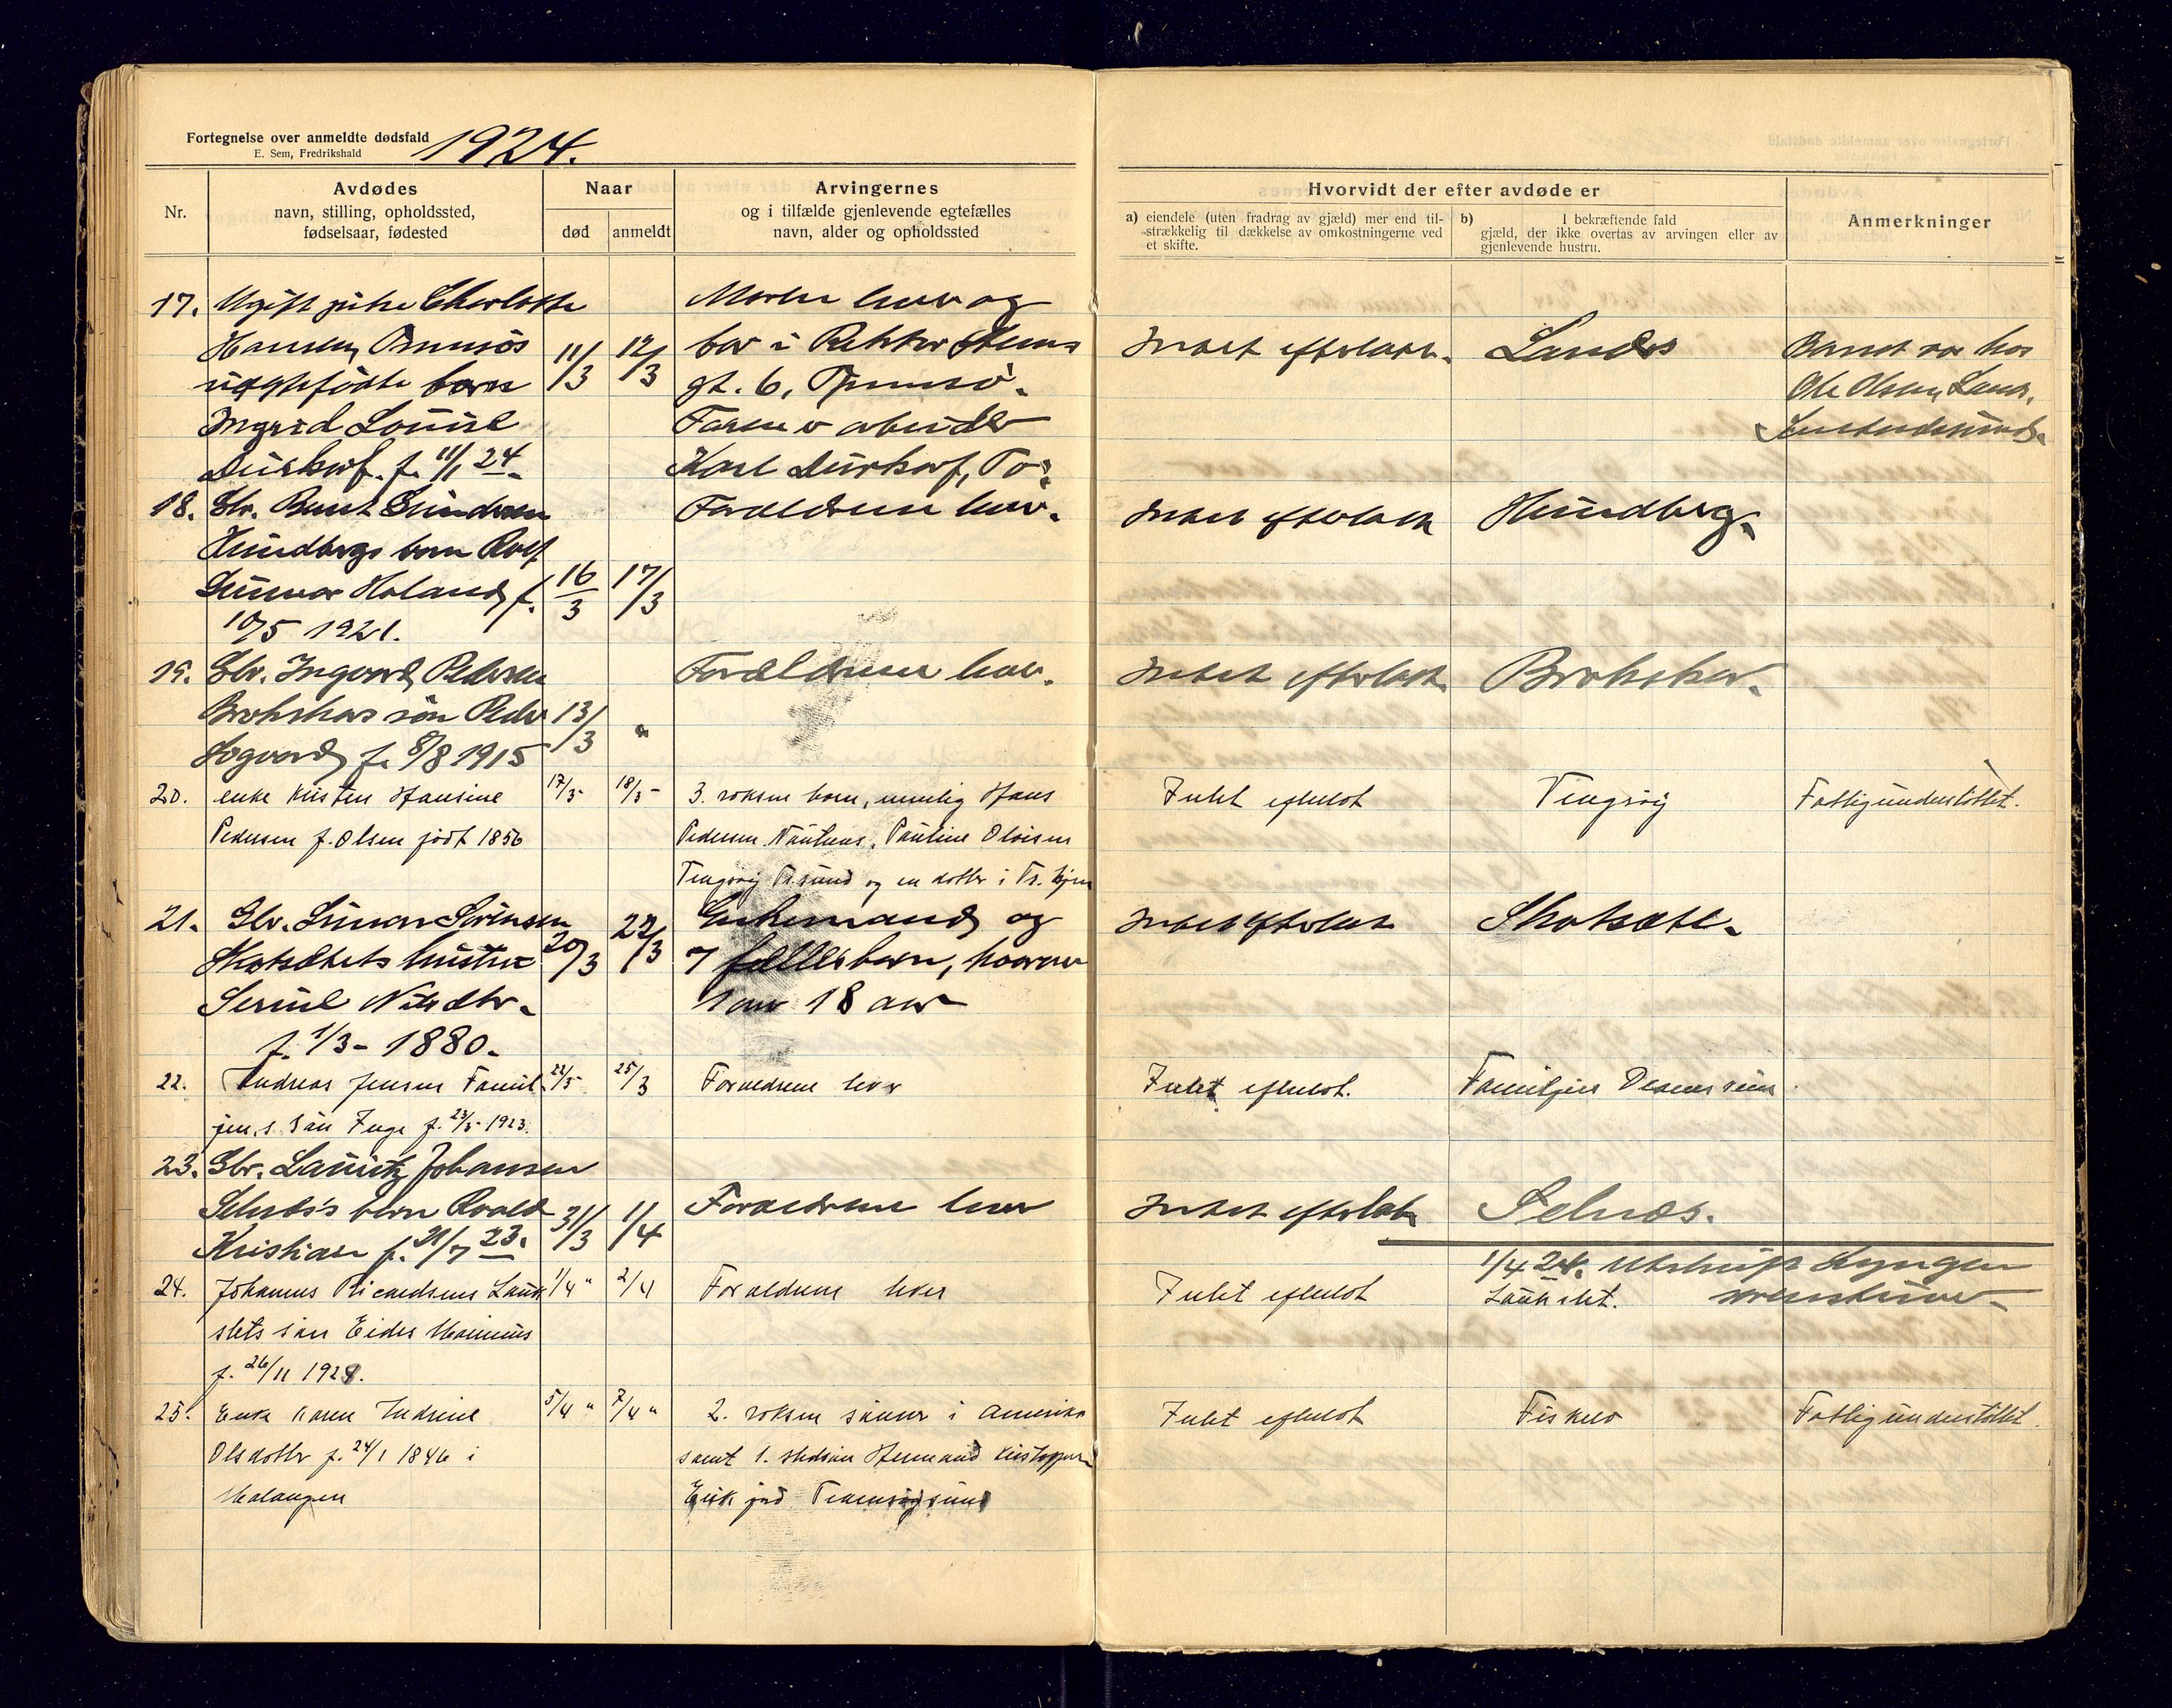 Fortegnelse over anmeldte dødsfald 1924.
E. Sem, Fredrikshald
Nr.
Avdødes
navn, stilling, opholdssted,
fødselsaar, fødested
Naar
død
anmeldt
Arvingernes
og i tilfælde gjenlevende egtefælles
navn, alder og opholdssted
Hvorvidt der efter avdøde er
a) eiendele (uten fradrag av gjæld) mer end til-
strækkelig til dækkelse av omkostningerne ved
et skifte.
b) I bekræftende fald
gjæld, der ikke overtas av arvingen eller av
gjenlevende hustru.
Anmerkninger
17. Ugift pike Charlotte
Hansen, Tromsös
uegtefödte barn
Ingrid Louise
f. 11/1 24.
11/3
12/3
Moren lever og
bor i Rektor Steens
gt. 6, Tromsö.
Faren er arbeider
Karl
Intet efterlatt.
Landes
Barnet var hos
Ole Olsen, Landes,
18. Gbr. Bernt Gundersen
Hundbergs barn Rolf
Gunnar Holand f.
10/5 1921.
16/3
17/3
Forældrene lever.
Intet efterlatt
Hundberg.
19. Gbr. Ingvard Pedersen
Brokskars sön Peder
Ingvard f. 8/8 1915
13/3
"
Forældrene lever.
Intet efterlatt.
Brokskar.
20. enke Kristen Hansine
Pedersen f. Olsen född 1856
17/3
18/3
3. voksne born, nemlig Hans
Pedersen Nautnes, Pauline Oluisen
Tengsøy Tr.sund og en dotter i Tr.
Intet efterlat
Tengsøy
Fattigunderstöttet.
21. Gbr. Simon Sörensen
Skotsætets hustru
Serine Nilsdtr.
f. 1/3 - 1880.
20/3
22/3
Enkemand og
7 fællesbarn, hvorav
1 over 18 aar
Intet efterlatt
Skotsæte.
22. Andreas Jensen Famil-
jen, s. sön Inge f. 23/5 1923.
22/3
25/3
Foreldrene lever
Intet efterlat.
23. Gbr. Lauritz Johansen
Selnes's barn Roald
Kristian f. 21/7 23.
31/3
1/4
Foreldrene lever
Intet efterlatt
Selnes.
1/4 24. Utskrift Lyngen
sorenskriver
24. Johannes Ricardsens Lauk-
slets sön Eider Marinius
f. 26/11 1921.
1/4 "
2/4
Foreldrene lever
Intet efterlat
Laukslet.
25. Enke Karen Indrine
Olsdotter f. 24/1 1846 i
Malangen
5/4 "
7/4 "
2. voksne sönner i Amerika
samt 1. stedsön Hermand Kristoppersen
Intet efterlat
Fiskeo
Fattigunderstöttet.